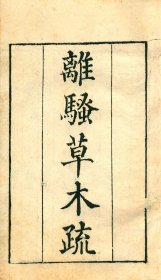 離騷草木疏